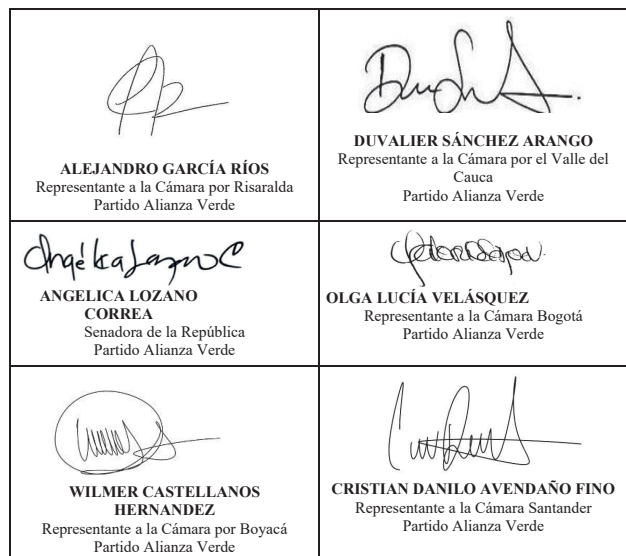 ALEJANDRO GARCÍA RÍOS
Representante a la Cámara por Risaralda
Partido Alianza Verde
DUVALIER SÁNCHEZ ARANGO
Representante a la Cámara por el Valle del
Cauca
Partido Alianza Verde
Angélica Lozano C
ANGELICA LOZANO
CORREA
Senadora de la República
Partido Alianza Verde
OLGA LUCÍA VELÁSQUEZ
Representante a la Cámara Bogotá
Partido Alianza Verde
WILMER CASTELLANOS
HERNANDEZ
Representante a la Cámara por Boyacá
Partido Alianza Verde
CRISTIAN DANILO AVENDAÑO FINO
Representante a la Cámara Santander
Partido Alianza Verde